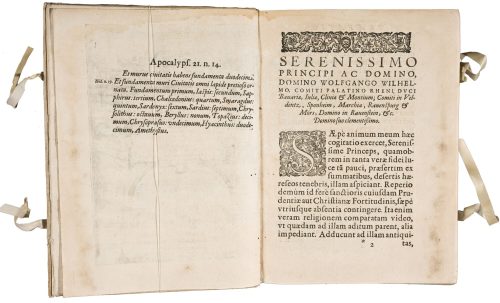 Apocalypſ. 21. n. 14.
Et murus ciuitatis habens fundamenta duodecim.
Et fundamenta muri Ciuitatis omni lapide pretioſo or-
nata. Fundamentum primum, Iaſpis: ſecundum, Sap-
phirus: tertium, Chalcedonius: quartum, Smaragdus:
quintum, Sardonyx: ſextum, Sardius: ſeptimum, Chry-
ſolithus: octauum, Beryllus: nonum, Topazius: deci-
mum, Chryſopraſus: vndecimum, Hyacinthus: duode-
cimum, Amethyſtus.
SERENISSIMO
PRINCIPI AC DOMINO,
DOMINO WOLFGANGO WILHEL-
MO, COMITI PALATINO RHENI, DVCI
Bauariæ, Iuliæ, Cliuiæ & Montium, Comiti in Vel-
dentz, Sponheim, Marchia, Rauenſburg &
Mörs, Domino in Rauenſtein, &c.
Domino ſuo clementiſſimo.
SÆpè animum meum hæc
cogitatio exercet, Sereniſ-
ſime Princeps, quamob-
rem in tanta veræ fidei lu-
ce tã pauci, præſertim ex
ſummatibus, deſertis hæ-
reſeos tenebris, illam aſpiciant. Reperio
demùm id ferè ſanctioris cuiuſdam Pru-
dentiæ aut Chriſtianæ Fortitudinis, ſæpè
vtriuſque abſentia contingere. Ita enim
veram religionem comparatam video,
vt quædam ad illam aditum parent, alia
impediant. Adducunt ad illam antiqui-
2 tas,